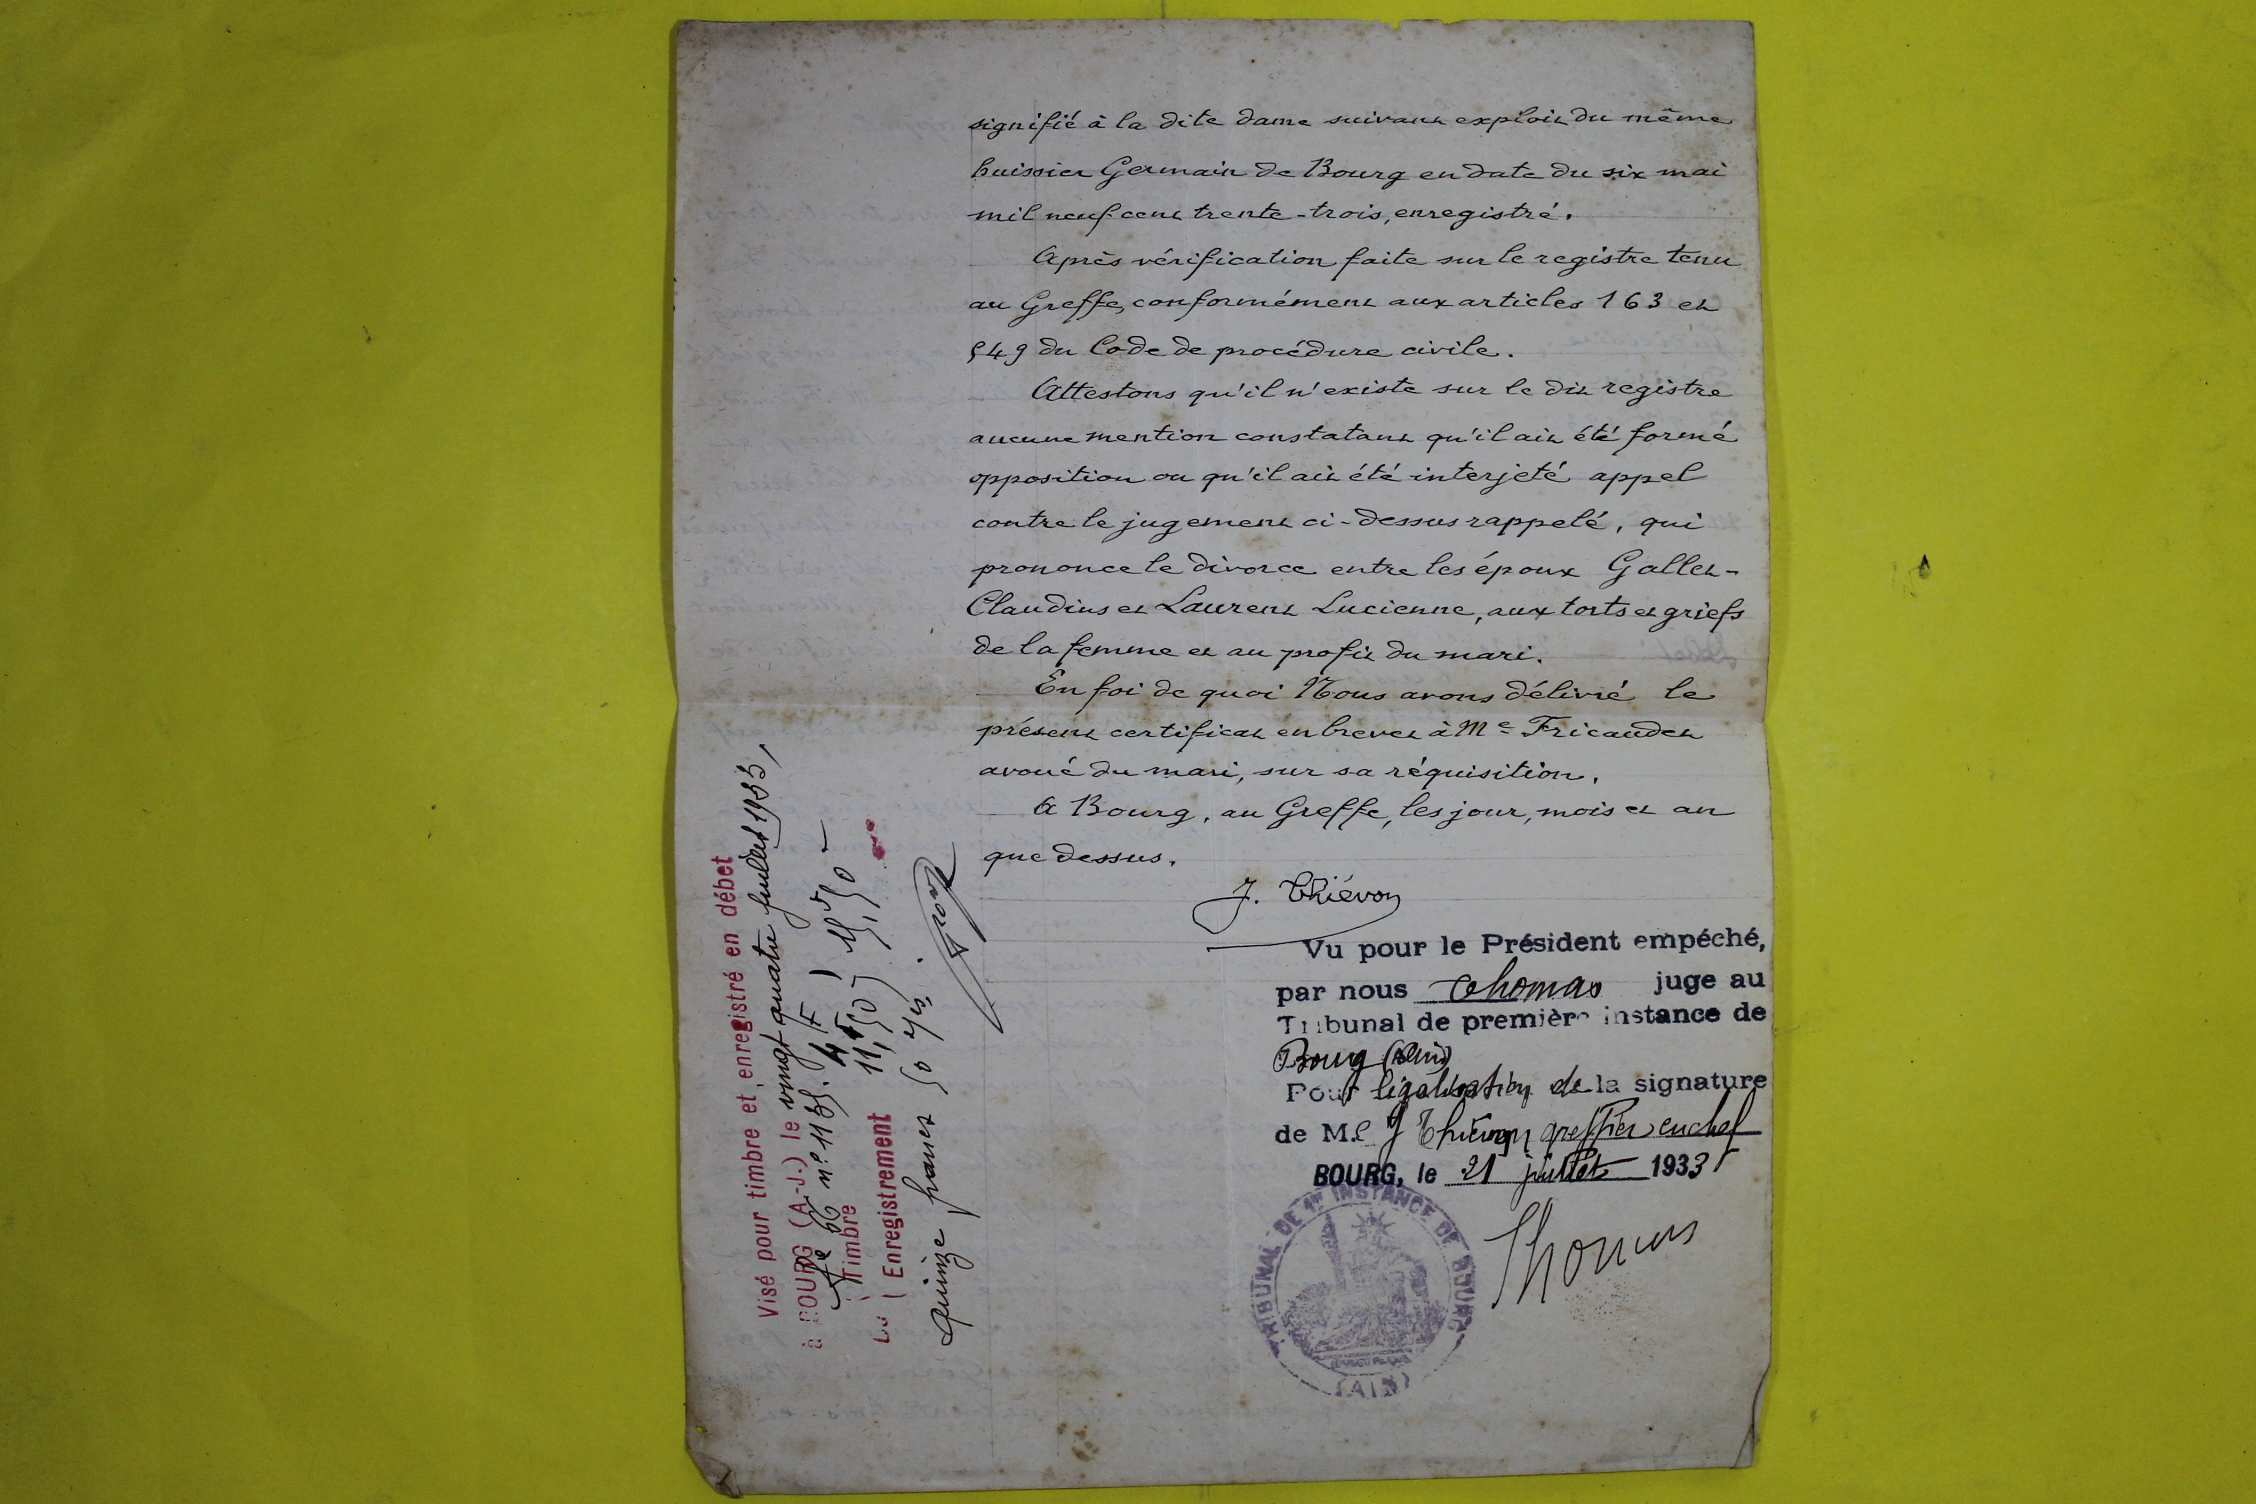 signifié à la dite dame suivant exploit du même
huissier Germain de Bourg en date du six mai
mil neuf cent trente-trois, enregistré.
Après vérification faite sur le registre tenu
au Greffe, conformément aux articles 163 et
549 du Code de procédure civile.
Attestons qu'il n'existe sur le dit registre
aucune mention constatant qu'il ait été formé
opposition ou qu'il ait été interjeté appel
contre le jugement ci-dessus rappelé, qui
prononce le divorce entre les époux Gallet-
Claudius et Laurent Lucienne, aux torts et griefs
de la femme et au profit du mari.
En foi de quoi Nous avons délivré le
présent certificat en brevet à Me Fricaudet
avoué du mari, sur sa réquisition.
A Bourg, au Greffe, les jour, mois et an
que dessus.
J. Thiévon
Vu pour le Président empéché,
par nous Thomas juge au
Tribunal de première instance de
Bourg (Ain)
Pour légalisation de la signature
de M. J Thiévon greffier en chef
BOURG, le 21 juillet 1933
Thomas
TRIBUNAL DE 1re INSTANCE DE BOURG
(AIN)
Visé pour timbre et enregistré en débet
à BOURG (A.-J.) le vingt quatre juillet 1933,
fo 66 no 1135.
Timbre 4F
Enregistrement 11,50
15,50
Quinze francs 50 cmes.